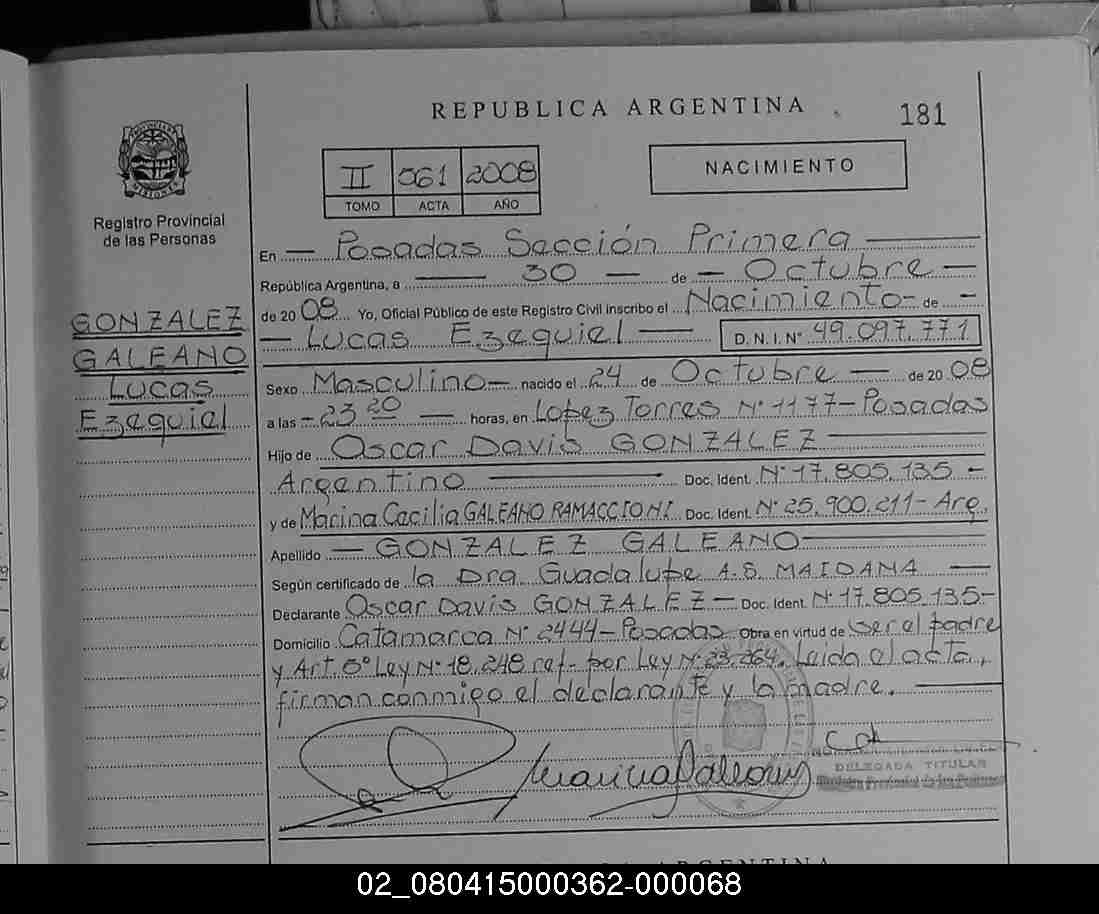 REPUBLICA ARGENTINA
181
II 061 2008
TOMO ACTA AÑO
NACIMIENTO
PROVINCIA
MISIONES
Registro Provincial
de las Personas
GONZALEZ
GALEANO
Lucas
Ezequiel
En — Posadas Sección Primera —
República Argentina, a — 30 — de — Octubre —
de 2008 Yo, Oficial Público de este Registro Civil inscribo el Nacimiento- de —
— Lucas Ezequiel — D.N.I.N° 49.097.771
Sexo Masculino — nacido el 24 de Octubre — de 2008
a las - 23 20 — horas, en Lopez Torres N° 1177 - Posadas
Hijo de Oscar Davis GONZALEZ —
Argentino — Doc. Ident. N° 17.805.135 -
y de Marina Cecilia GALEANO RAMACCIONI Doc. Ident. N° 25.900.211 - Arg.
Apellido — GONZALEZ GALEANO —
Según certificado de la Dra Guadalupe A.S. MAIDANA —
Declarante Oscar Davis GONZALEZ — Doc. Ident. N° 17.805.135-
Domicilio Catamarca N° 2444 - Posadas Obra en virtud de ser el padre
y Art. 5° Ley N° 18.248 ref. por Ley N° 23.264. Leída el acta,
firman conmigo el declarante y la madre. —
Marina Galeano
DELEGADA TITULAR
Registro Provincial de las Personas
ARGENTINA
02_080415000362-000068